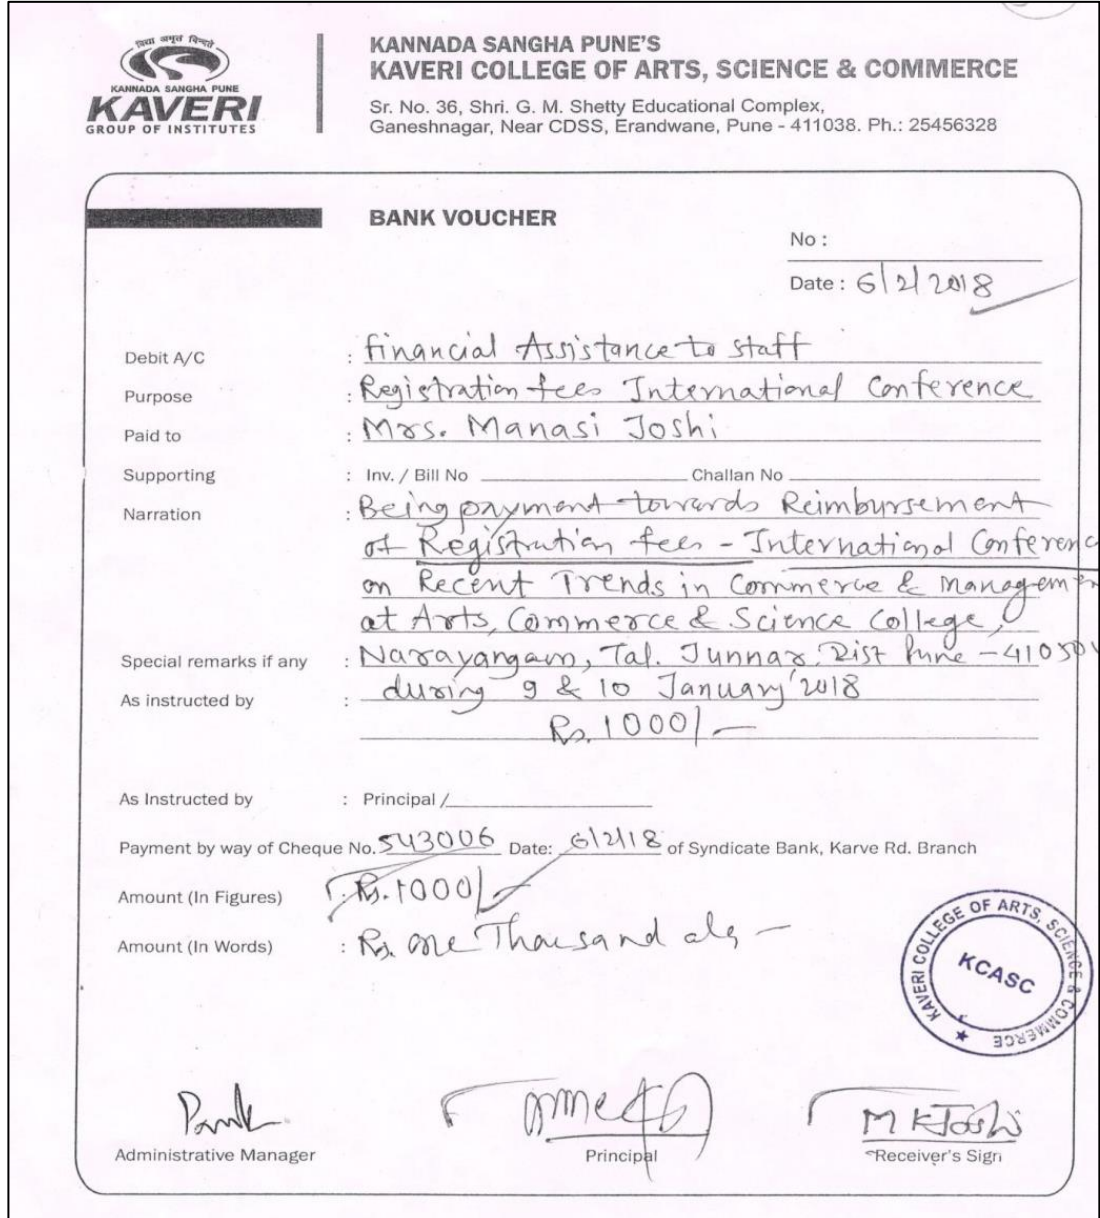 विद्या अमृतं विन्दते
KANNADA SANGHA PUNE
KAVERI
GROUP OF INSTITUTES
KANNADA SANGHA PUNE'S
KAVERI COLLEGE OF ARTS, SCIENCE & COMMERCE
Sr. No. 36, Shri. G. M. Shetty Educational Complex,
Ganeshnagar, Near CDSS, Erandwane, Pune - 411038. Ph.: 25456328
BANK VOUCHER
No :
Date : 6/2/2018
Debit A/C : financial Assistance to staff
Purpose : Registration fees International Conference
Paid to : Mrs. Manasi Joshi
Supporting : Inv. / Bill No Challan No
Narration : Being payment towards Reimbursement
of Registration fees - International Conferenc
on Recent Trends in Commerce & Managemen
at Arts, Commerce & Science College,
Special remarks if any : Narayangaon, Tal. Junnar, Dist Pune - 410504
As instructed by : during 9 & 10 January '2018
Rs. 1000/-
As Instructed by : Principal /
Payment by way of Cheque No. 543006 Date: 6/2/18 of Syndicate Bank, Karve Rd. Branch
Amount (In Figures) : Rs. 1000/-
Amount (In Words) : Rs. one Thousand only -
KAVERI COLLEGE OF ARTS, SCIENCE & COMMERCE
KCASC
M K Joshi
Administrative Manager Principal Receiver's Sign